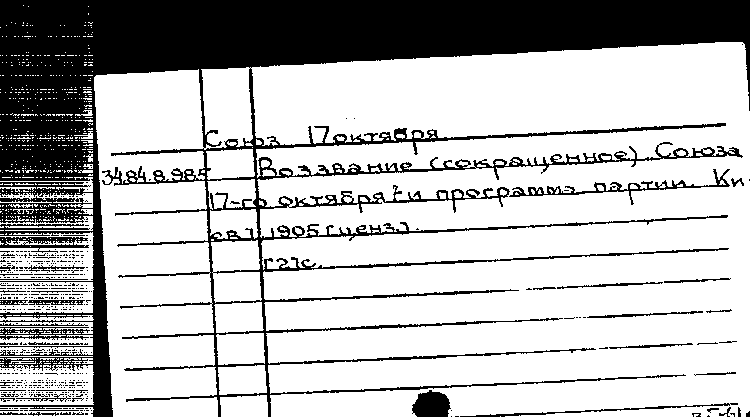 Союз 17 октября
34.84.8.985 Воззвание (сокращенное) Союза
17-го октября и программа партии. Ки-
ев, 1905 [ценз].
[2]с.